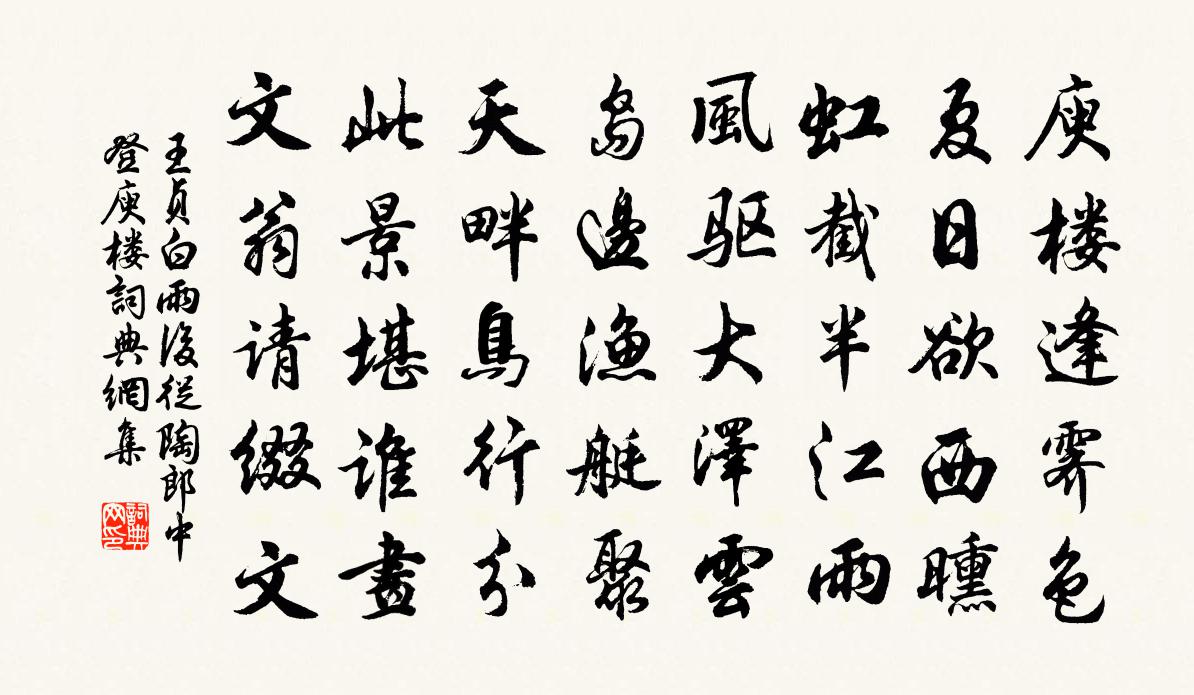 庾楼逢霁色
夏日欲西曛
虹截半江雨
風驱大澤雲
島邊漁艇聚
天畔鳥行分
此景堪誰畫
文翁请缀文
王贞白雨後從陶郎中
登庾楼詞典網集
詞典网印